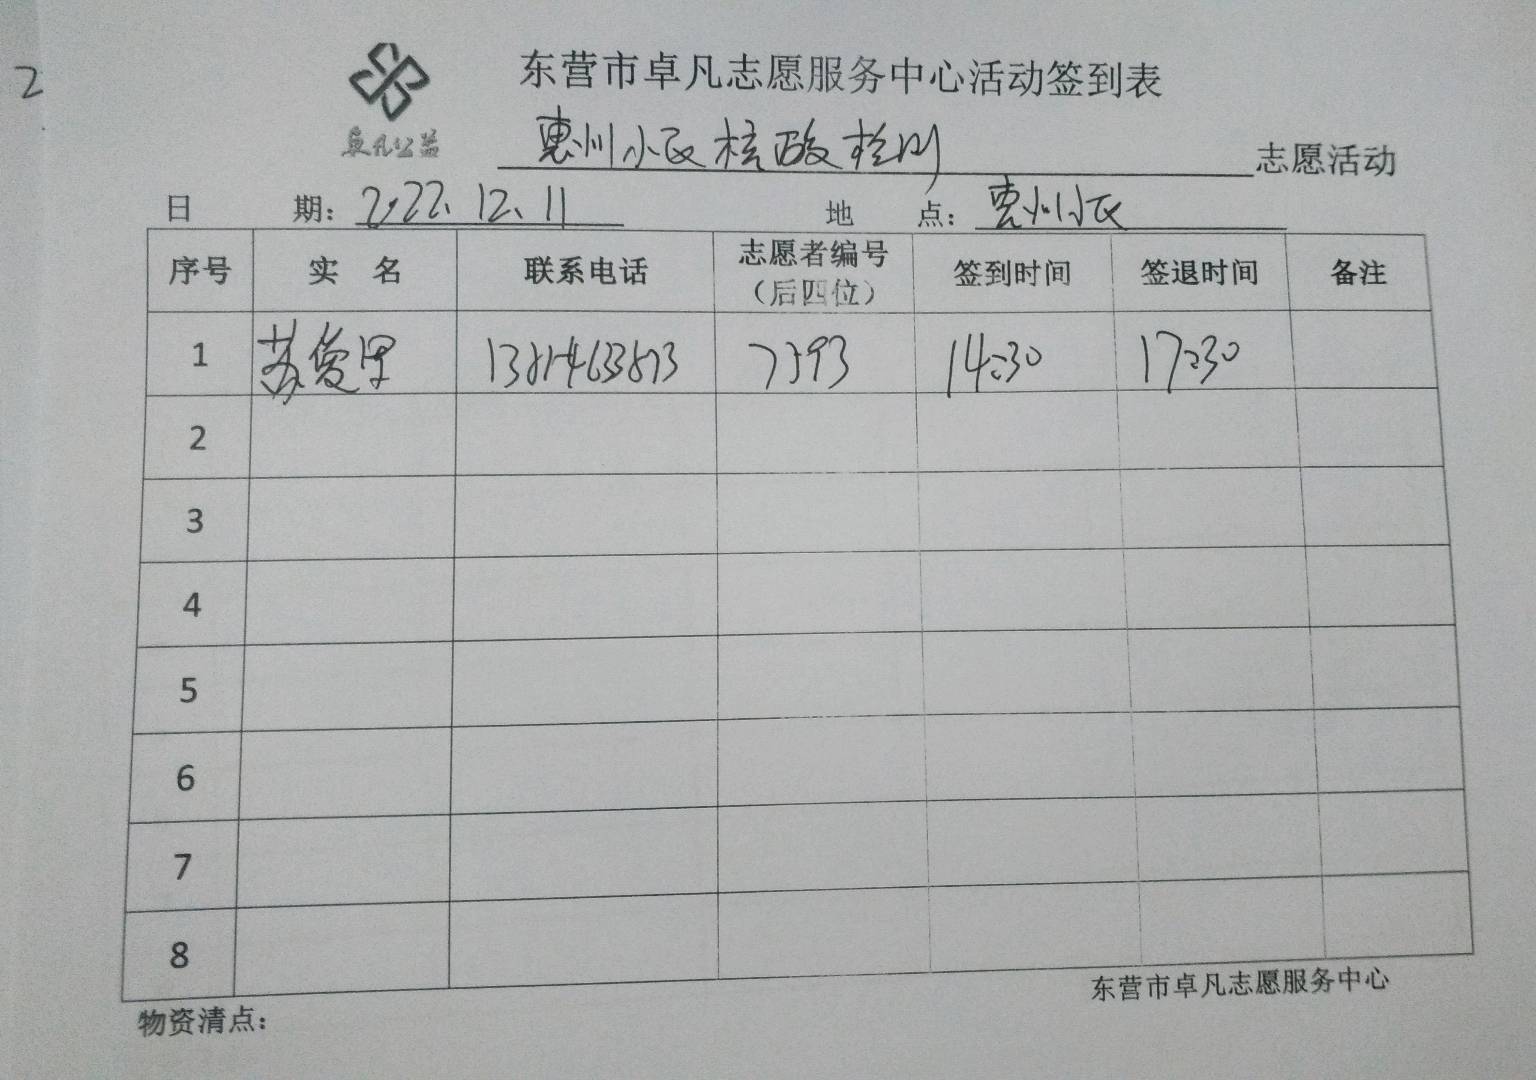 2
东营市卓凡志愿服务中心活动签到表
卓凡公益
惠州小区核酸检测 志愿活动
日 期: 2022.12.11 地 点: 惠州小区
序号 实 名 联系电话 志愿者编号(后四位) 签到时间 签退时间 备注
1 苏 7593 14:30 17:30
2
3
4
5
6
7
8
东营市卓凡志愿服务中心
物资清点: